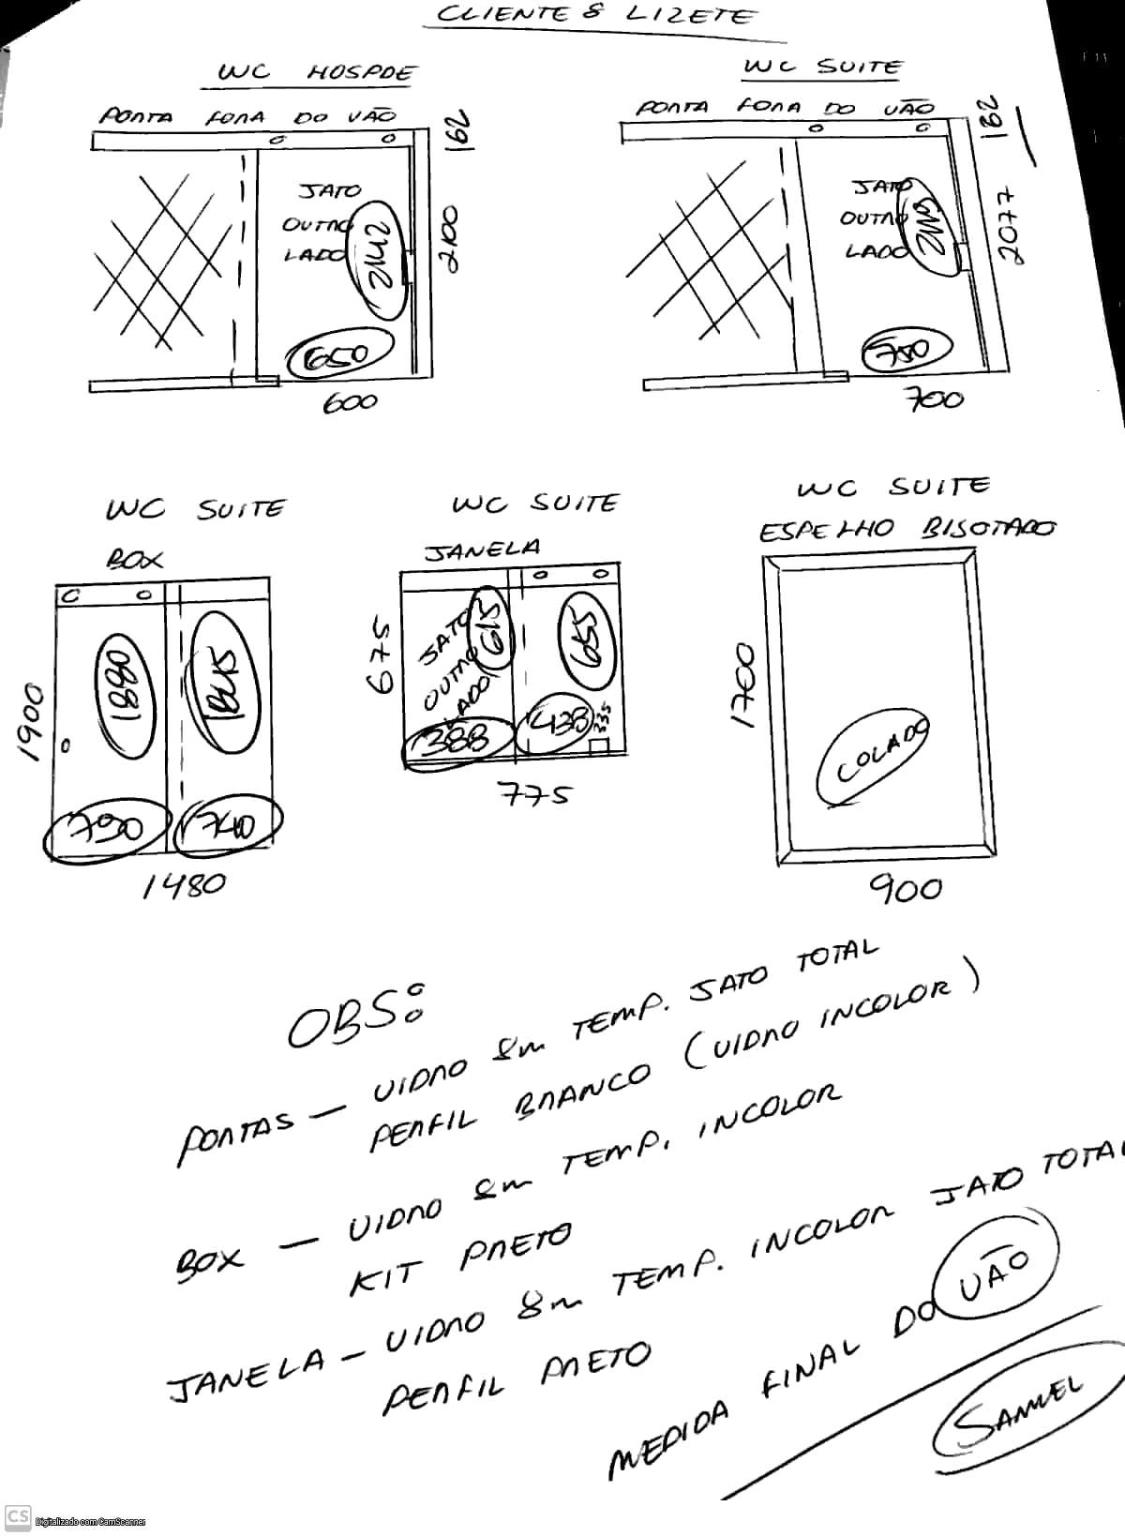 CLIENTE : LIZETE
WC HOSPDE
PORTA FORA DO VÃO
162
JATO
OUTRO
LADO
2142
2100
650
600
WC SUITE
PORTA FORA DO VÃO
162
JATO
OUTRO
LADO
2077
750
700
WC SUITE
BOX
1900
1880
1845
790
740
1480
WC SUITE
JANELA
675
JATO
OUTRO
LADO
615
655
388
438
335
775
WC SUITE
ESPELHO BISOTADO
1700
COLADO
900
OBS:
PORTAS — VIDRO 8m TEMP. JATO TOTAL
PERFIL BRANCO (VIDRO INCOLOR)
BOX — VIDRO 8m TEMP. INCOLOR
KIT PRETO
JANELA — VIDRO 8m TEMP. INCOLOR JATO TOTAL
PERFIL PRETO
MEDIDA FINAL DO VÃO
SAMUEL
CS
Digitalizado com CamScanner